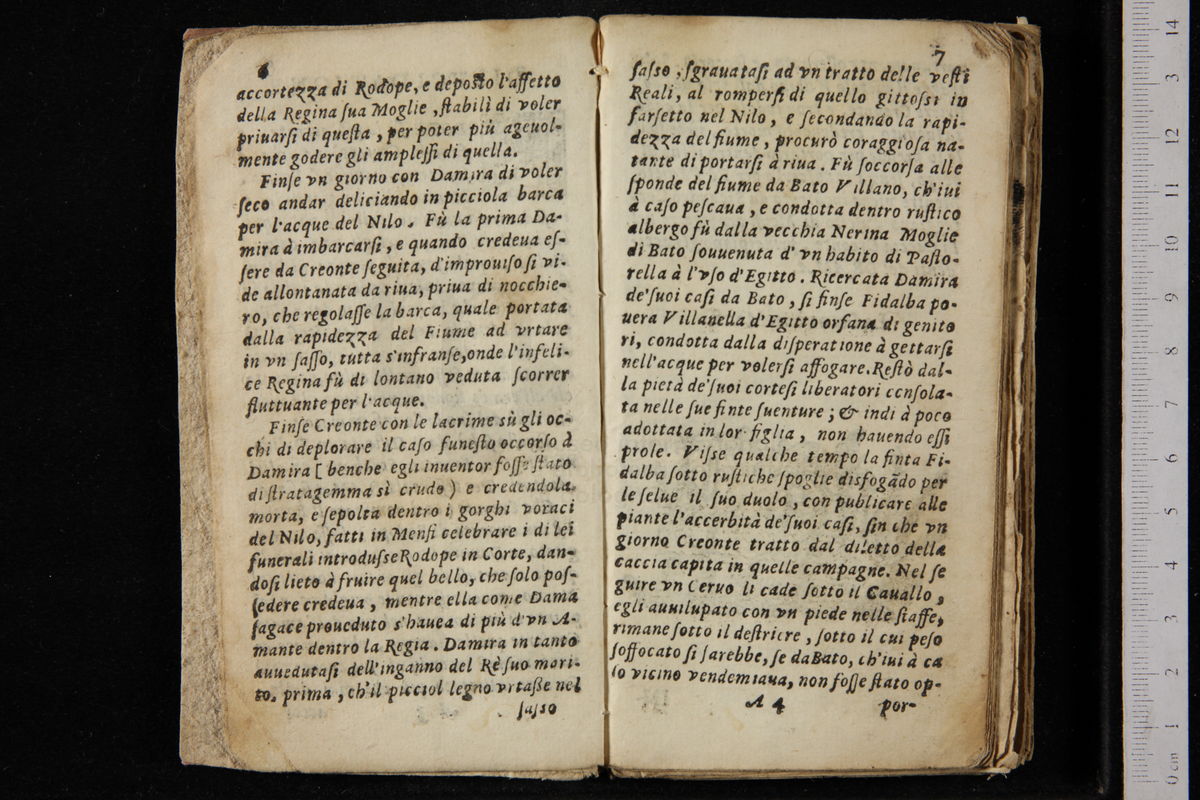 6
accortezza di Rodope, e deposto l'affetto
della Regina ſua Moglie, ſtabilì di voler
priuarſi di queſta, per poter più ageuol-
mente godere gli ampleſſi di quella.
Finſe vn giorno con Damira di voler
ſeco andar deliciando in picciola barca
per l'acque del Nilo. Fù la prima Da-
mira à imbarcarſi, e quando credeua eſ-
ſere da Creonte ſeguita, d'improuiſo ſi vi-
de allontanata da riua, priua di nocchie-
ro, che regolaſſe la barca, quale portata
dalla rapidezza del Fiume ad vrtare
in vn ſaſſo, tutta s'infranſe, onde l'infeli-
ce Regina fù di lontano veduta ſcorrer
fluttuante per l'acque.
Finſe Creonte con le lacrime sù gli oc-
chi di deplorare il caſo funeſto occorſo à
Damira [ benche egli inuentor foſſe ſtato
di ſtratagemma sì crudo ) e credendola
morta, e ſepolta dentro i gorghi voraci
del Nilo, fatti in Menfi celebrare i di lei
funerali introduſse Rodope in Corte, dan-
doſi lieto à fruire quel bello, che ſolo poſ-
ſedere credeua, mentre ella come Dama
ſagace proueduto s'hauea di più d'vn A-
mante dentro la Regia. Damira in tanto
auuedutaſi dell'inganno del Rè ſuo mari-
to, prima, ch'il picciol legno vrtaſſe nel
ſaſso
7
ſaſso, ſgrauataſi ad vn tratto delle veſti
Reali, al romperſi di quello gittoſsi in
farſetto nel Nilo, e ſecondando la rapi-
dezza del fiume, procurò coraggioſa na-
tante di portarſi à riua. Fù ſoccorſa alle
ſponde del fiume da Bato Villano, ch'iui
à caſo peſcaua, e condotta dentro ruſtico
albergo fù dalla vecchia Nerina Moglie
di Bato ſouuenuta d'vn habito di Paſto-
rella à l'vſo d'Egitto. Ricercata Damira
de'ſuoi caſi da Bato, ſi finſe Fidalba po-
uera Villanella d'Egitto orfana di genito
ri, condotta dalla diſperatione à gettarſi
nell'acque per volerſi affogare. Reſtò dal-
la pietà de'ſuoi corteſi liberatori conſola-
ta nelle ſue finte ſuenture; & indi à poco
adottata in lor figlia, non hauendo eſſi
prole. Viſse qualche tempo la finta Fi-
dalba ſotto ruſtiche ſpoglie disfogãdo per
le ſelue il ſuo duolo, con publicare alle
piante l'accerbità de'ſuoi caſi, ſin che vn
giorno Creonte tratto dal diletto della
caccia capita in quelle campagne. Nel ſe
guire vn Ceruo li cade ſotto il Cauallo,
egli auuilupato con vn piede nelle ſtaffe,
rimane ſotto il deſtriere, ſotto il cui peſo
ſoffocato ſi ſarebbe, ſe da Bato, ch'iui à ca
ſo vicino vendemiaua, non foſſe ſtato op-
A 4 por-
0 cm 1 2 3 4 5 6 7 8 9 10 11 12 3 14